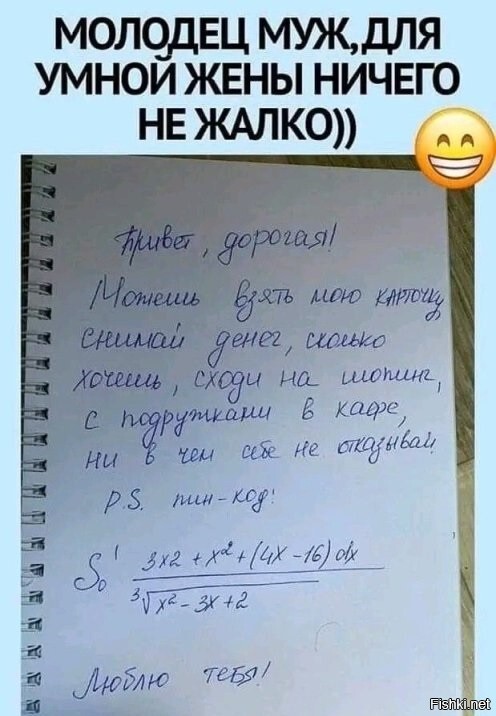 МОЛОДЕЦ МУЖ,ДЛЯ
УМНОЙ ЖЕНЫ НИЧЕГО
НЕ ЖАЛКО))
Привет, дорогая!
Можешь взять мою карточку,
снимай денег, сколько
хочешь, сходи на шопинг,
с подружками в кафе,
ни в чем себе не отказывай
P.S. пин-код:
∫₀¹ 3x2 + x² + (4x - 16) dx
∛x² - 3x + 2
Люблю тебя!
Fishki.net